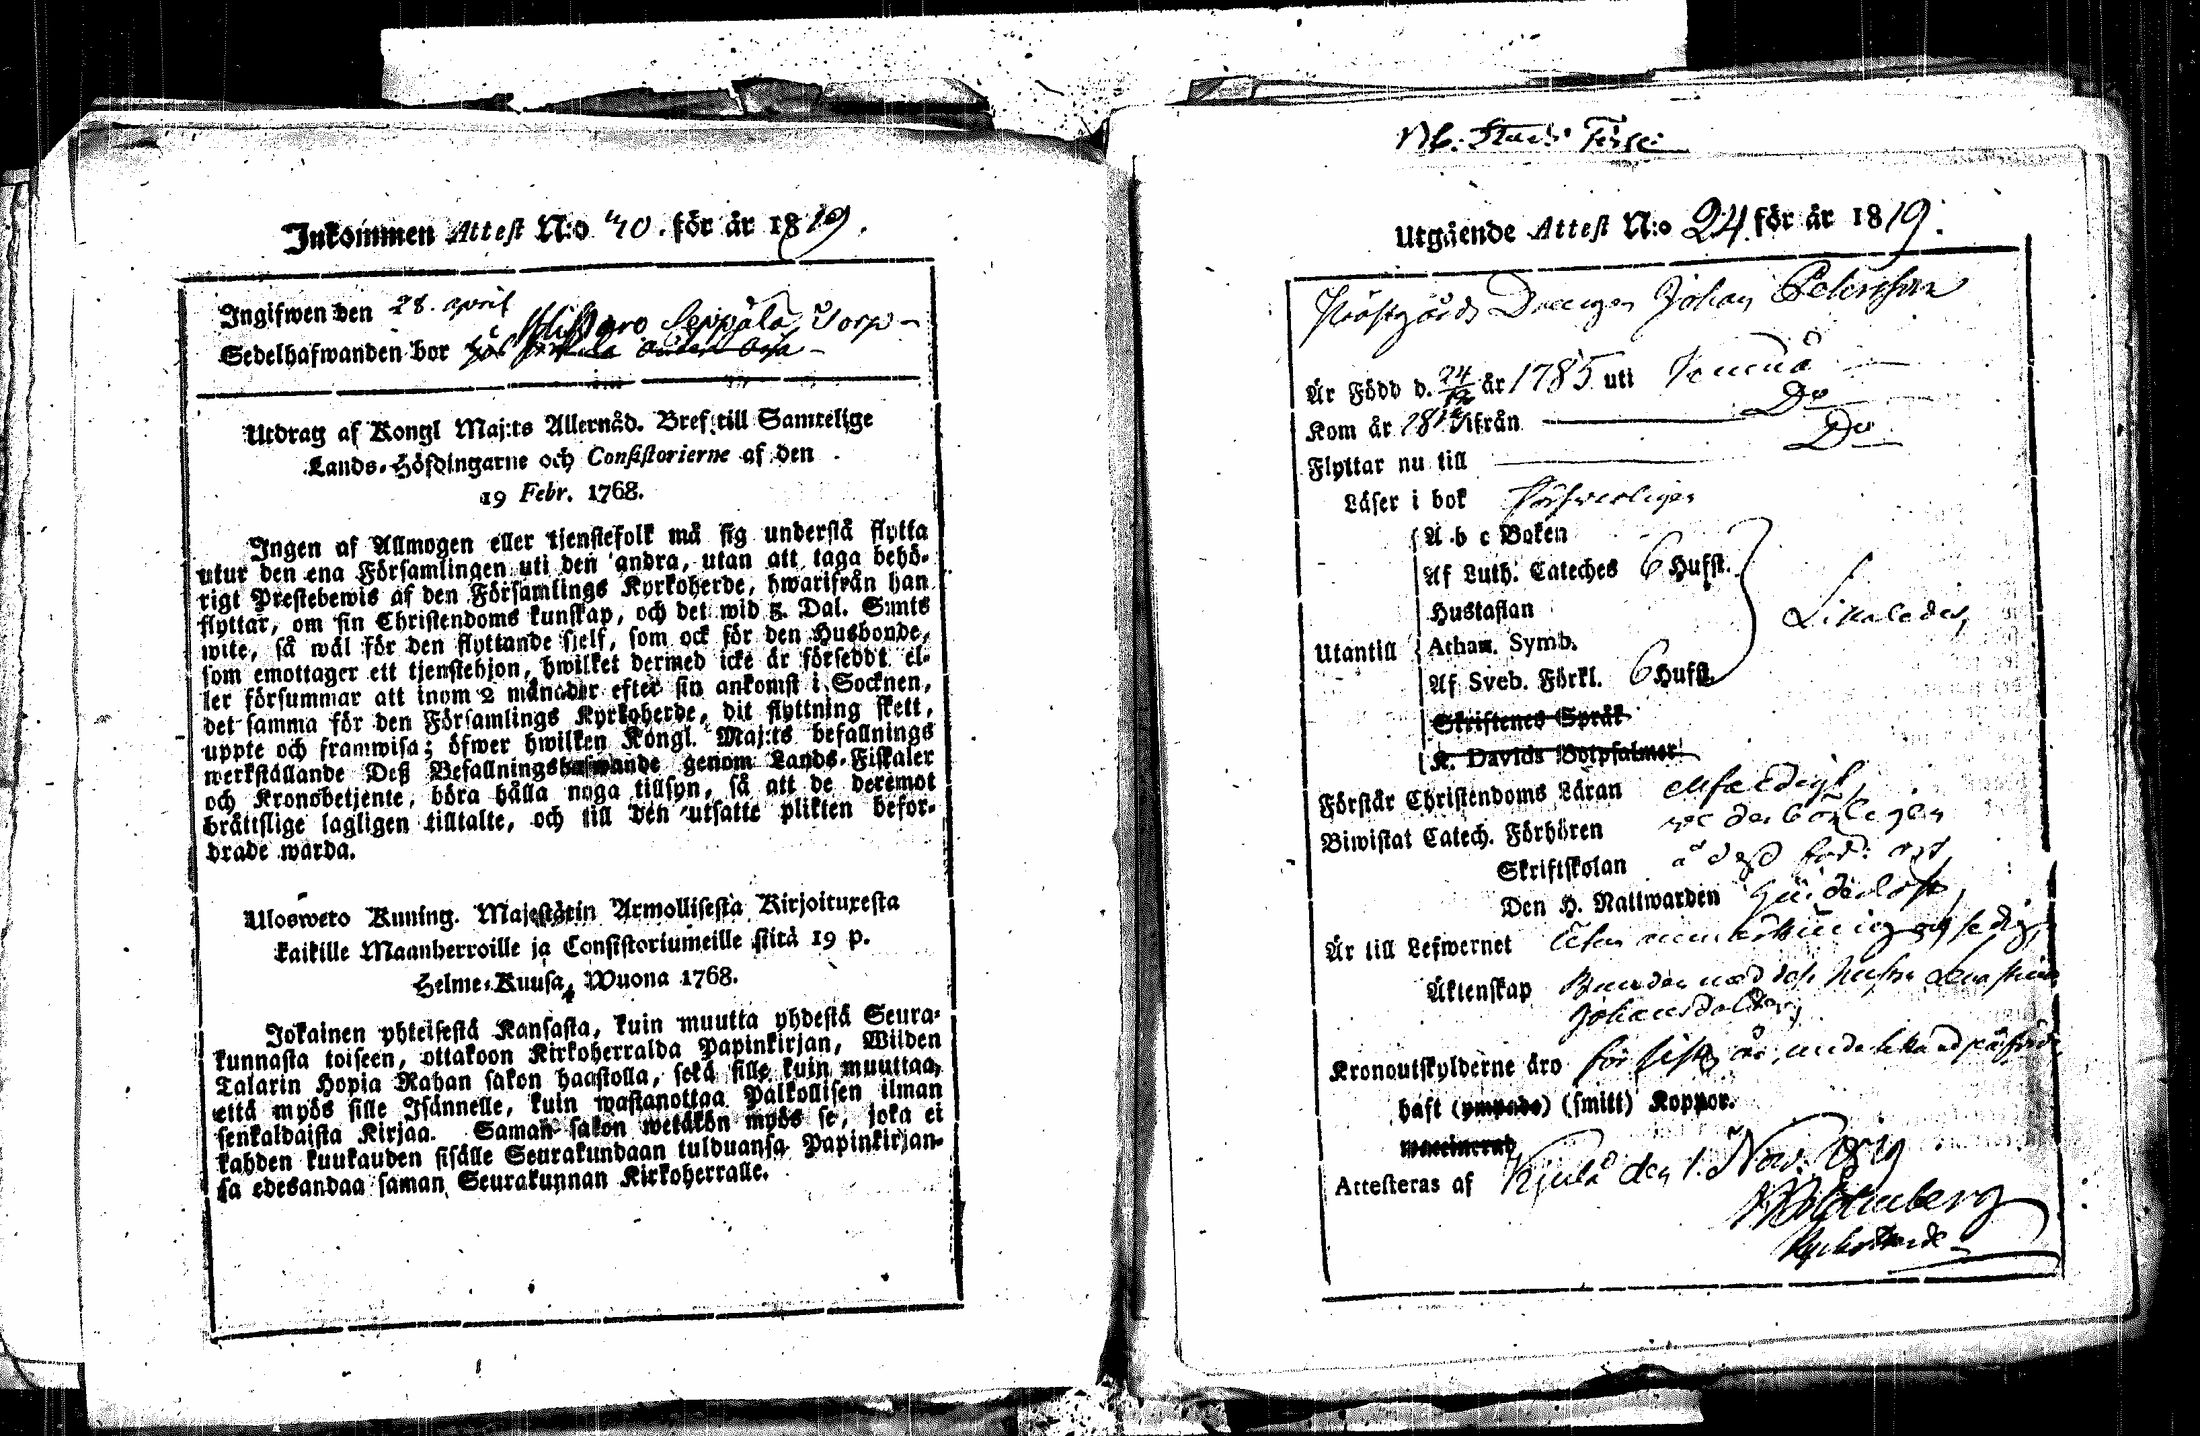 Inkommen Attest N:o 40. för år 1819.
Ingifwen den 28. april
Sedelhafwanden bor hos Seppälä Torp
Utdrag af Kongl Maj:ts Allernåd. Bref till Samtelige
Lands-Höfdingarne och Consistorierne af den
19 Febr. 1768.
Ingen af Allmogen eller tjenstefolk må sig understå flytta
utur den ena Församlingen uti den andra, utan att taga behö-
rigt Prestebewis af den Församlings Kyrkoherde, hwarifrån han
flyttar, om sin Christendoms kunskap, och det wid 3. Dal. S:mts
wite, så wäl för den flyttande sjelf, som ock för den Husbonde,
som emottager ett tjenstehjon, hwilket dermed icke är försedt el-
ler försummar att inom 2 månader efter sin ankomst i Socknen,
det samma för den Församlings Kyrkoherde, dit flyttning skett,
uppte och framwisa; öfwer hwilken Kongl. Maj:ts befallnings
werkställande Deß Befallningshafwande genom Lands-Fiskaler
och Kronobetjente, böra hålla noga tillsyn, så att de deremot
brättslige lagligen tilltalte, och till den utsatte plikten befor-
drade warda.
Ulosweto Kuning. Majestätin Armollisesta Kirjoituxesta
kaikille Maanherroille ja Consistoriumeille siitä 19 p.
Helme-Kuusa, Wuona 1768.
Jokainen yhteisestä Kansasta, kuin muutta yhdestä Seura-
kunnasta toiseen, ottakoon Kirkoherralda Papinkirjan, Wiiden
Talarin Hopia Rahan sakon haastolla, sekä sille kuin muuttaa,
että myös sille Isännelle, kuin wastanottaa Palkollisen ilman
senkaldaista Kirjaa. Saman sakon wetäkön myös se, joka ei
kahden kuukauden sisälle Seurakundaan tulduansa Papinkirjan-
sa edesandaa saman Seurakunnan Kirkoherralle.
Utgående Attest N:o 24. för år 1819.
Prästgårds Drängen Johan Petersson
Är Född d. 24/12 år 1785 uti Vemmå
Kom år 18 ifrån Do
Flyttar nu till Do
Läser i bok försvarligen
A b c Boken
Af Luth. Cateches 6 Hufst.
Hustaflan
Likaledes,
Utantill Athan. Symb.
Af Sveb. Förkl. 6 Hufst.
Skriftenes Språk
K. Davids Botpsalmer
Förstår Christendoms Läran enfaldigt,
Biwistat Catech. Förhören wederbörligen
Skriftskolan å deß
Den H. Nattwarden
Är till Lefwernet utan anmärkning
Äktenskap med dess hustru
Johansdotter,
Kronoutskylderne äro för sistl. år,
haft (ympade) (smitt) Koppor.
waccinerad
Attesteras af Kjulå den 1. Nov. 1819
Kyrkoherde